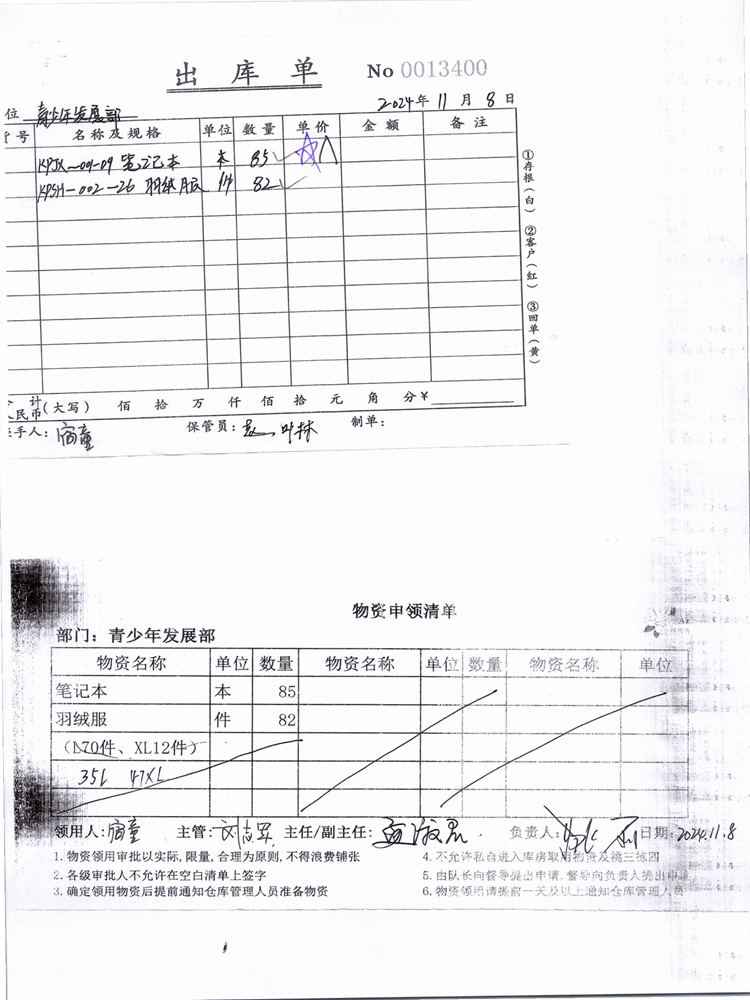 出库单 No 0013400
位 青少年发展部 2024年11月8日
号 名称及规格 单位 数量 单价 金额 备注
笔记本 本 85
KPSH-002-26 羽绒服 件 82
①存根(白) ②客户(红) ③回单(黄)
计
民币(大写) 佰 拾 万 仟 佰 拾 元 角 分¥
手人: 保管员: 制单:
物资申领清单
部门：青少年发展部
物资名称 单位 数量 物资名称 单位 数量 物资名称 单位
笔记本 本 85
羽绒服 件 82
70件、XL12件)
35L 47XL
领用人: 主管: 主任/副主任: 负责人: 日期: 2024.11.8
1. 物资领用审批以实际,限量,合理为原则,不得浪费铺张
2. 各级审批人不允许在空白清单上签字
3. 确定领用物资后提前通知仓库管理人员准备物资
4. 不允许私自进入库房取用物资
5. 由队长向督导提出申请,督导向负责人提出申
6. 物资领用请提前一天及以上通知仓库管理人员